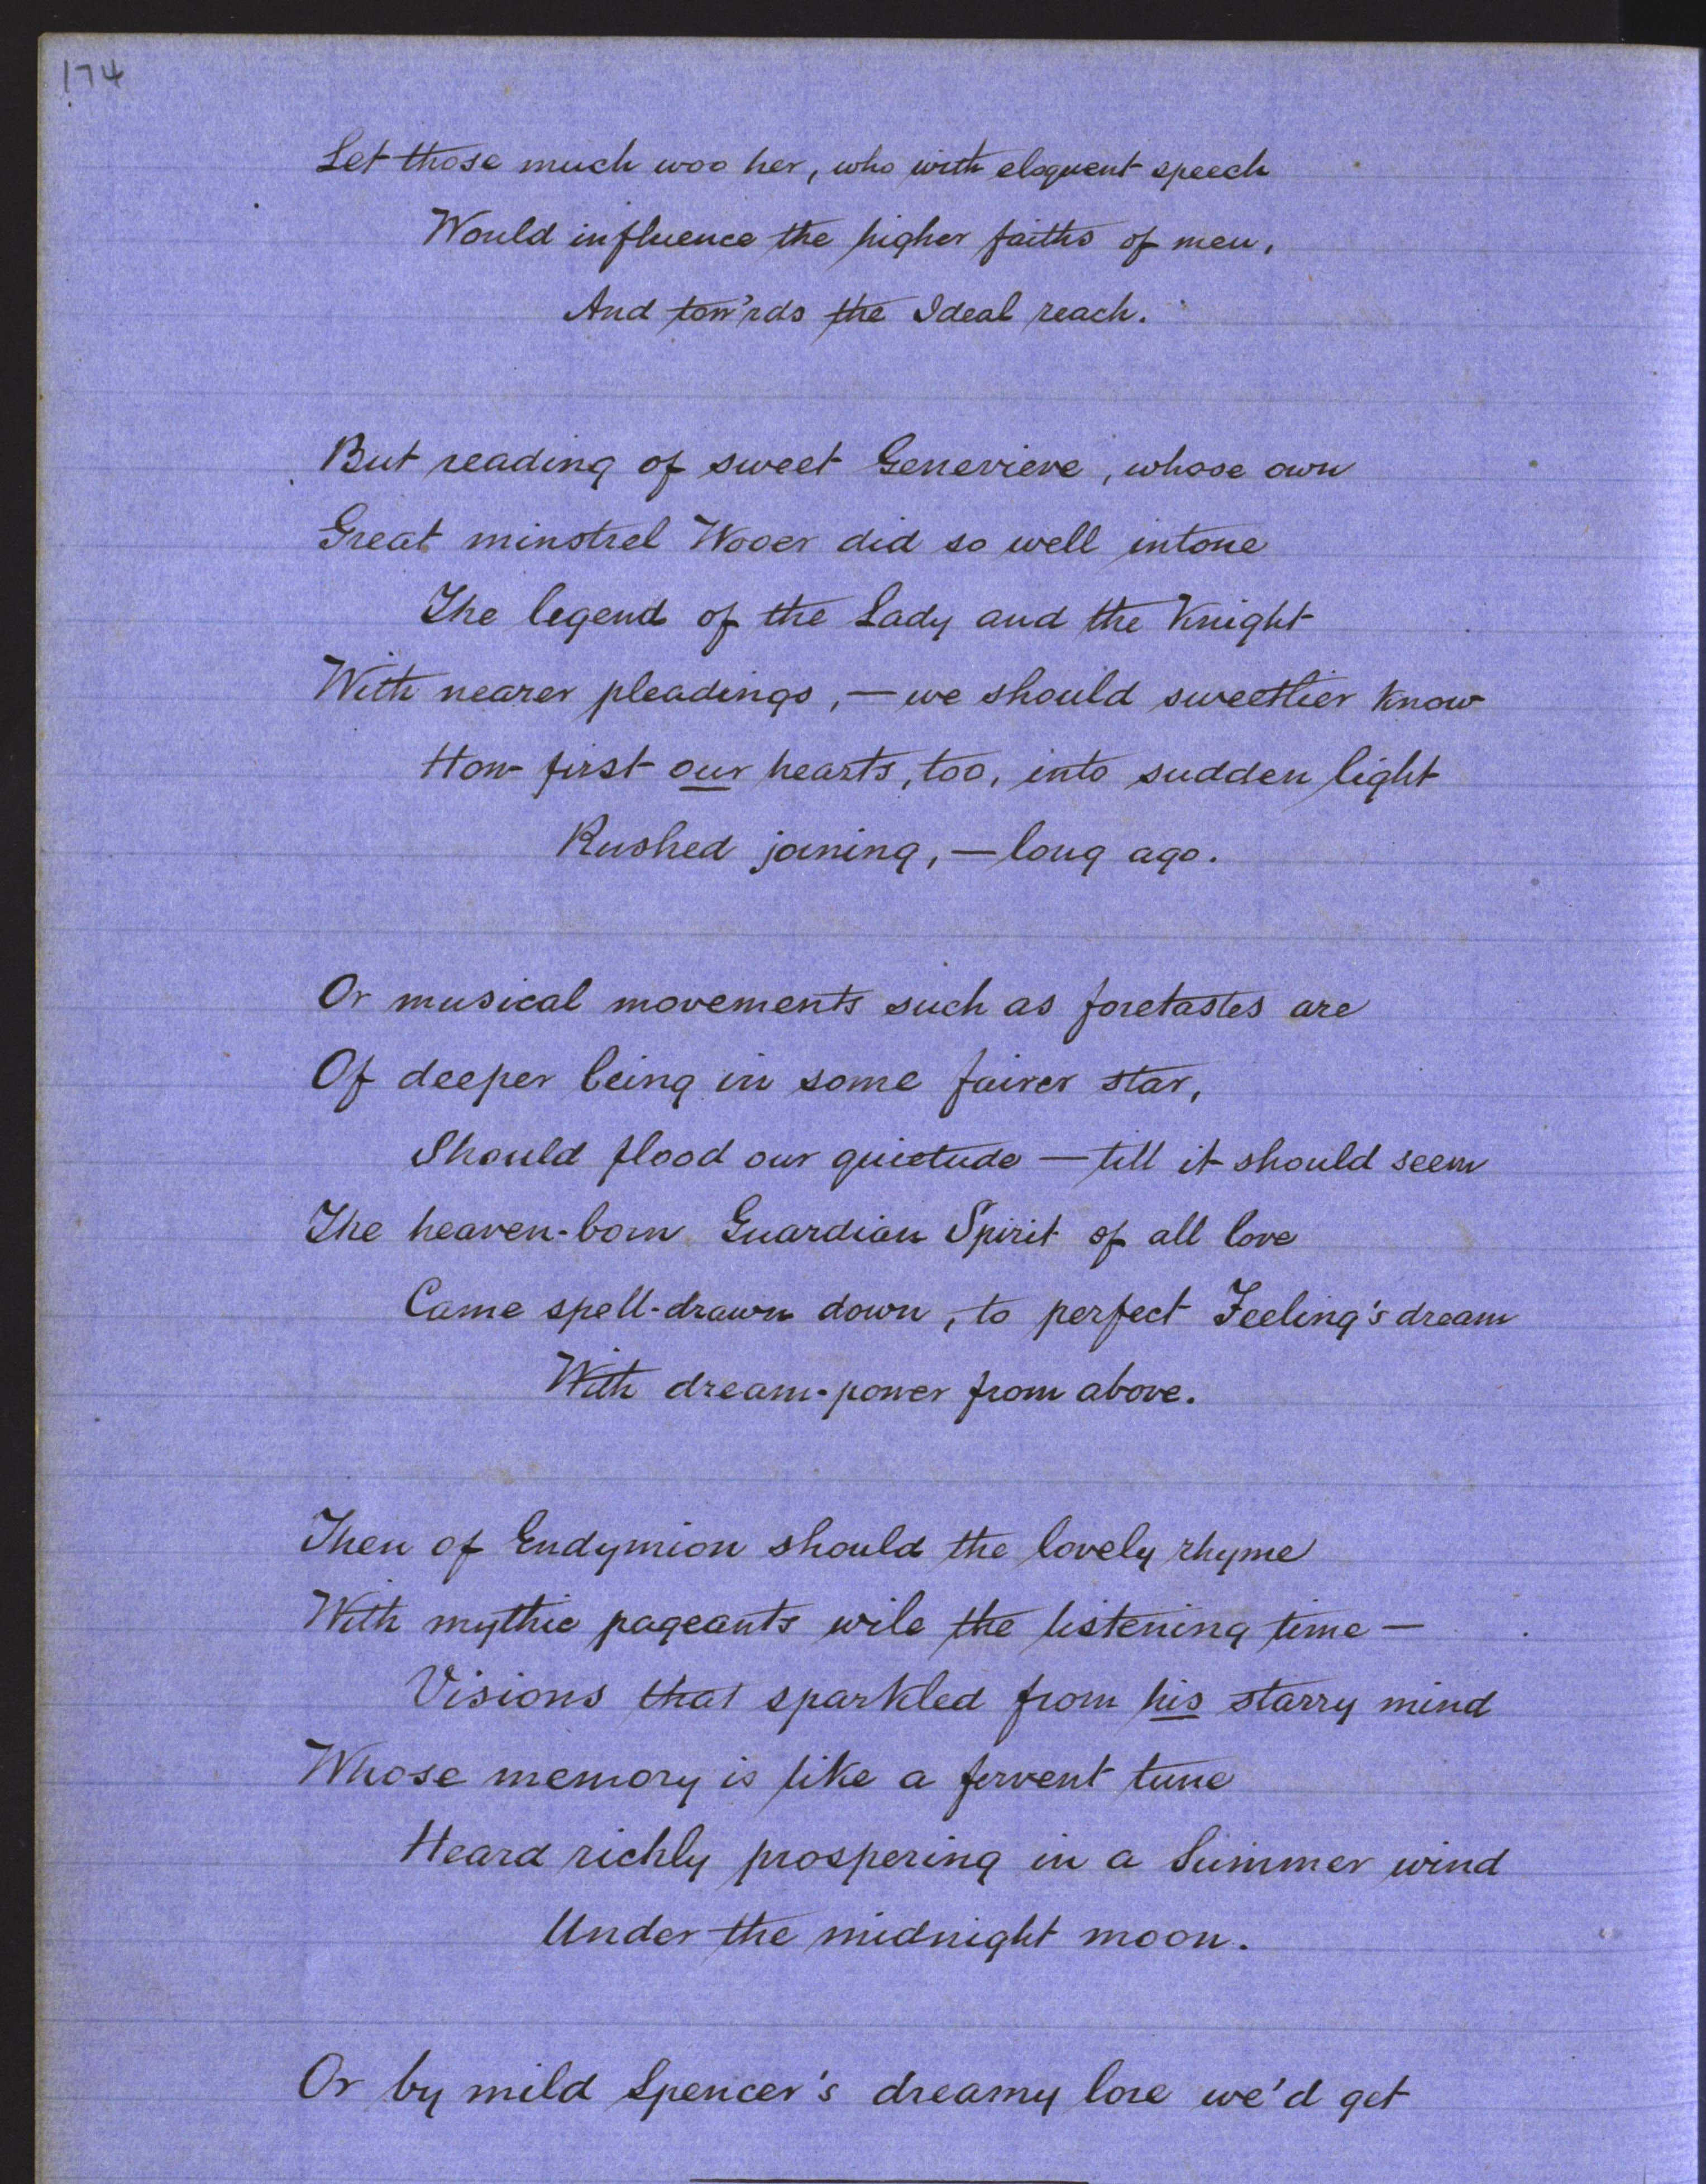 174
Let those much woo her, who with eloquent speech
Would influence the higher faiths of men,
And tow'rds the Ideal reach.
But reading of sweet Genevieve, whose own
Great minstrel Wooer did so well intone
The legend of the Lady and the Knight
With nearer pleadings, — we should sweetlier know
How first our hearts, too, into sudden light
Rushed joining, — long ago.
Or musical movements such as foretastes are
Of deeper being in some fairer star,
Should flood our quietude — till it should seem
The heaven-born Guardian Spirit of all love
Came spell-drawn down, to perfect Feeling's dream
With dream-power from above.
Then of Endymion should the lovely rhyme
With mythic pageants wile the listening time —
Visions that sparkled from his starry mind
Whose memory is like a fervent tune
Heard richly prospering in a Summer wind
Under the midnight moon.
Or by mild Spencer's dreamy lore we'd get